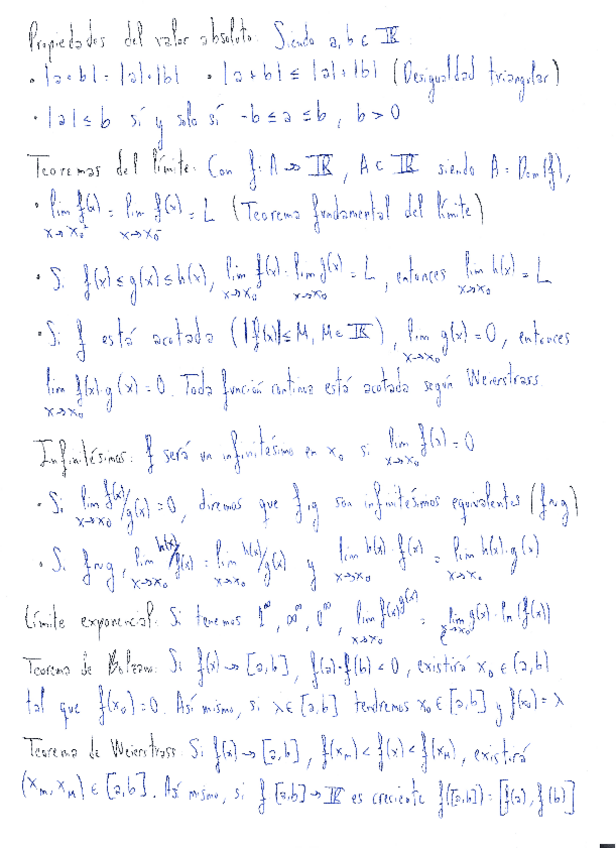 Propiedades del valor absoluto: Siendo a, b ∈ ℝ
• |a·b| = |a|·|b| • |a+b| ≤ |a|+|b| (Desigualdad triangular)
• |a| ≤ b sí y solo sí -b ≤ a ≤ b, b > 0
Teoremas del límite: Con f: A → ℝ, A ⊂ ℝ siendo A = Dom(f),
• lim x→x₀⁺ f(x) = lim x→x₀⁻ f(x) = L (Teorema fundamental del límite)
• Si f(x) ≤ g(x) ≤ h(x), lim x→x₀ f(x) = lim x→x₀ g(x) = L, entonces lim x→x₀ h(x) = L
• Si f está acotada (|f(x)| ≤ M, M ∈ ℝ), lim x→x₀ g(x) = 0, entonces
lim x→x₀ f(x)·g(x) = 0. Toda función continua está acotada según Weierstrass
Infinitésimos: f será un infinitésimo en x₀ si lim x→x₀ f(x) = 0
• Si lim x→x₀ f(x)/g(x) = 0, diremos que f y g son infinitésimos equivalentes (f~g)
• Si f~g, lim x→x₀ h(x)/f(x) = lim x→x₀ h(x)/g(x) y lim x→x₀ h(x)·f(x) = lim x→x₀ h(x)·g(x)
Límite exponencial: Si tenemos 1^∞, ∞^∞, 0^∞, lim x→x₀ f(x)^g(x) = e^lim x→x₀ g(x)·ln(f(x))
Teorema de Bolzano: Si f(x) → [a,b], f(a)·f(b) < 0, existirá x₀ ∈ (a,b)
tal que f(x₀) = 0. Así mismo, si λ ∈ [a,b] tendremos x₀ ∈ [a,b] y f(x₀) = λ
Teorema de Weierstrass: Si f(x) → [a,b], f(xm) < f(x) < f(xM), existirá
(xm, xM) ∈ [a,b]. Así mismo, si f [a,b] → ℝ es creciente f([a,b]) = [f(a), f(b)]